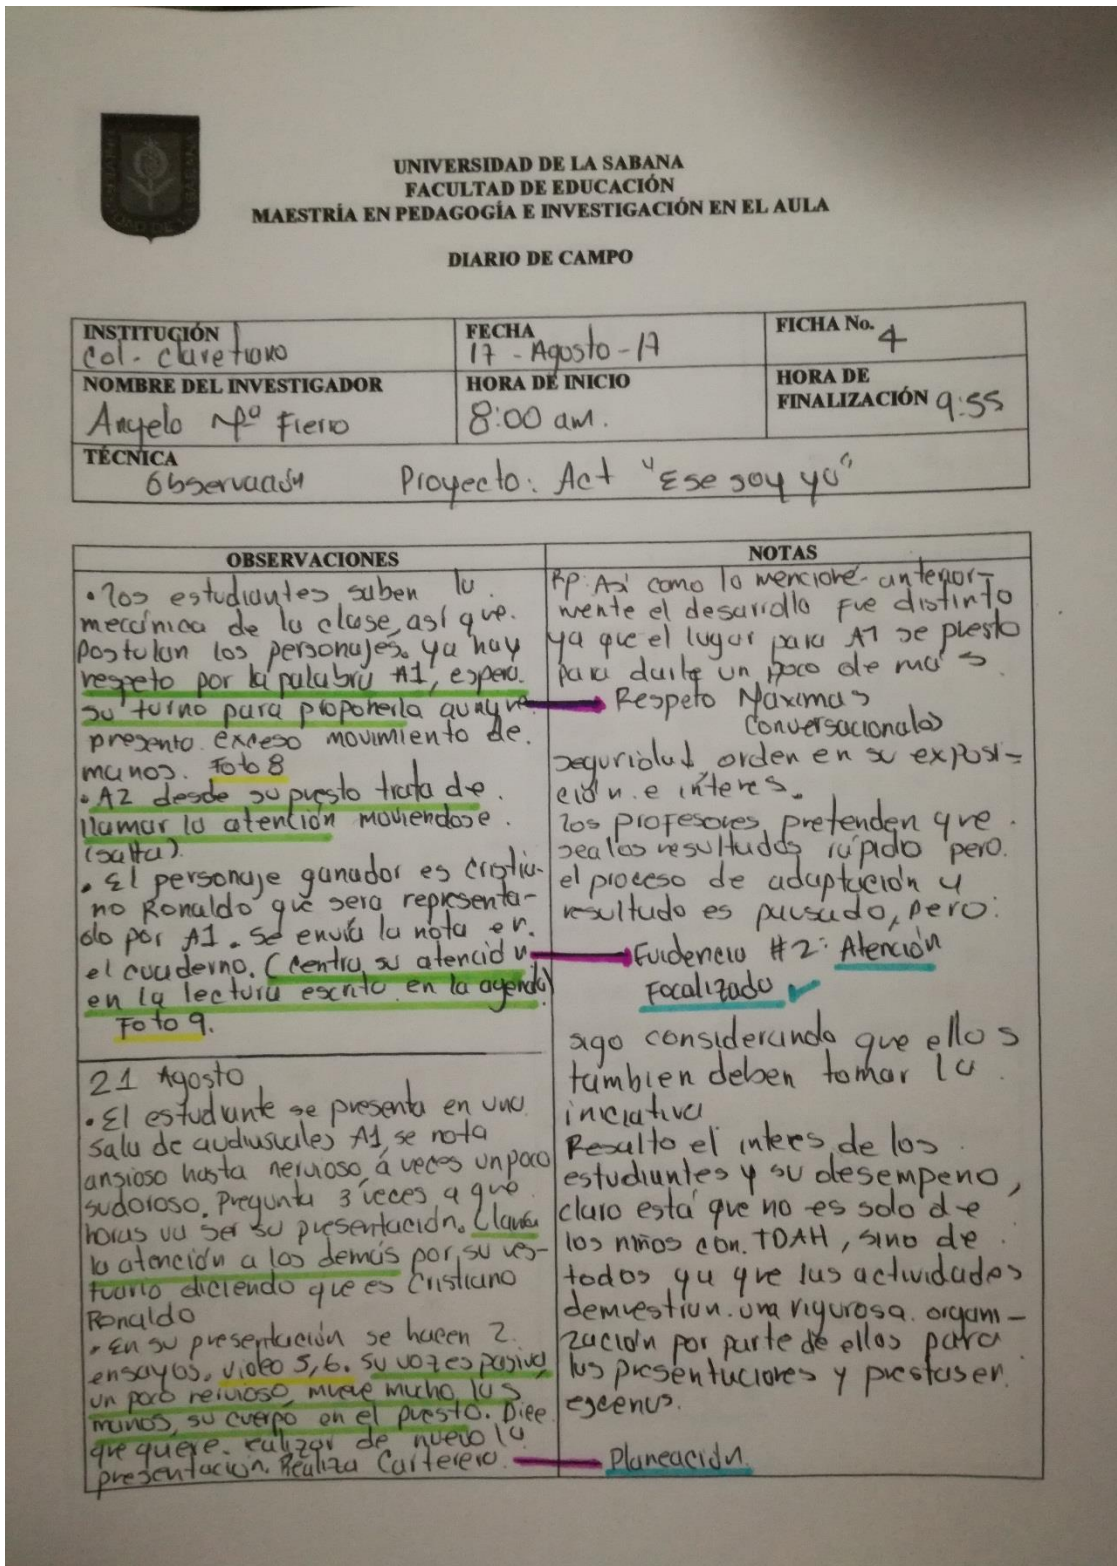 UNIVERSIDAD DE LA SABANA
FACULTAD DE EDUCACIÓN
MAESTRÍA EN PEDAGOGÍA E INVESTIGACIÓN EN EL AULA
DIARIO DE CAMPO
INSTITUCIÓN
Col. Claretiano
FECHA
17 - Agosto - 17
FICHA No. 4
NOMBRE DEL INVESTIGADOR
Angela Mª Fierro
HORA DE INICIO
8:00 am.
HORA DE
FINALIZACIÓN 9:55
TÉCNICA
Observación Proyecto: Act "Ese soy yo"
OBSERVACIONES
• Los estudiantes saben la
mecánica de la clase, así que
postulan los personajes. ya hay
respeto por la palabra A1, espera
su turno para proponerla aunque
presento exceso movimiento de
manos. Foto 8
• A2 desde su puesto trata de
llamar la atención moviendose
(salta).
• El personaje ganador es Cristia-
no Ronaldo que sera representa-
do por A1. Se envía la nota en
el cuaderno. (Centra su atención
en la lectura escrita en la agenda)
Foto 9.
21 Agosto
• El estudiante se presenta en una
sala de audiusuales A1, se nota
ansioso hasta nervioso, a veces un poco
sudoroso. Pregunta 3 veces a que
horas va ser su presentación. Llama
la atención a los demás por su ves-
tuario diciendo que es Cristiano
Ronaldo
• En su presentación se hacen 2
ensayos, video 5, 6. Su voz es pasiva,
un poco nervioso, mueve mucho las
manos, su cuerpo en el puesto. Dice
que quere realizar de nuevo la
presentación. Realiza Carterero.
NOTAS
Rp: Así como lo mencioné anterior-
mente el desarrollo fue distinto
ya que el lugar para A1 se presto
para darle un poco de mas
Respeto Máximas
Conversacionales
seguridad, orden en su exposi-
ción e interes.
Los profesores pretenden que
sea los resultados rápido pero
el proceso de adaptación y
resultado es pausado, pero:
Evidencia #2: Atención
Focalizada
sigo considerando que ellos
tambien deben tomar la
iniciativa
Resalto el interes de los
estudiantes y su desempeño,
claro está que no es solo de
los niños con TDAH, sino de
todos ya que las actividades
demuestran una rigurosa organi-
zación por parte de ellos para
las presentaciones y prestas en
escenas.
Planeación.